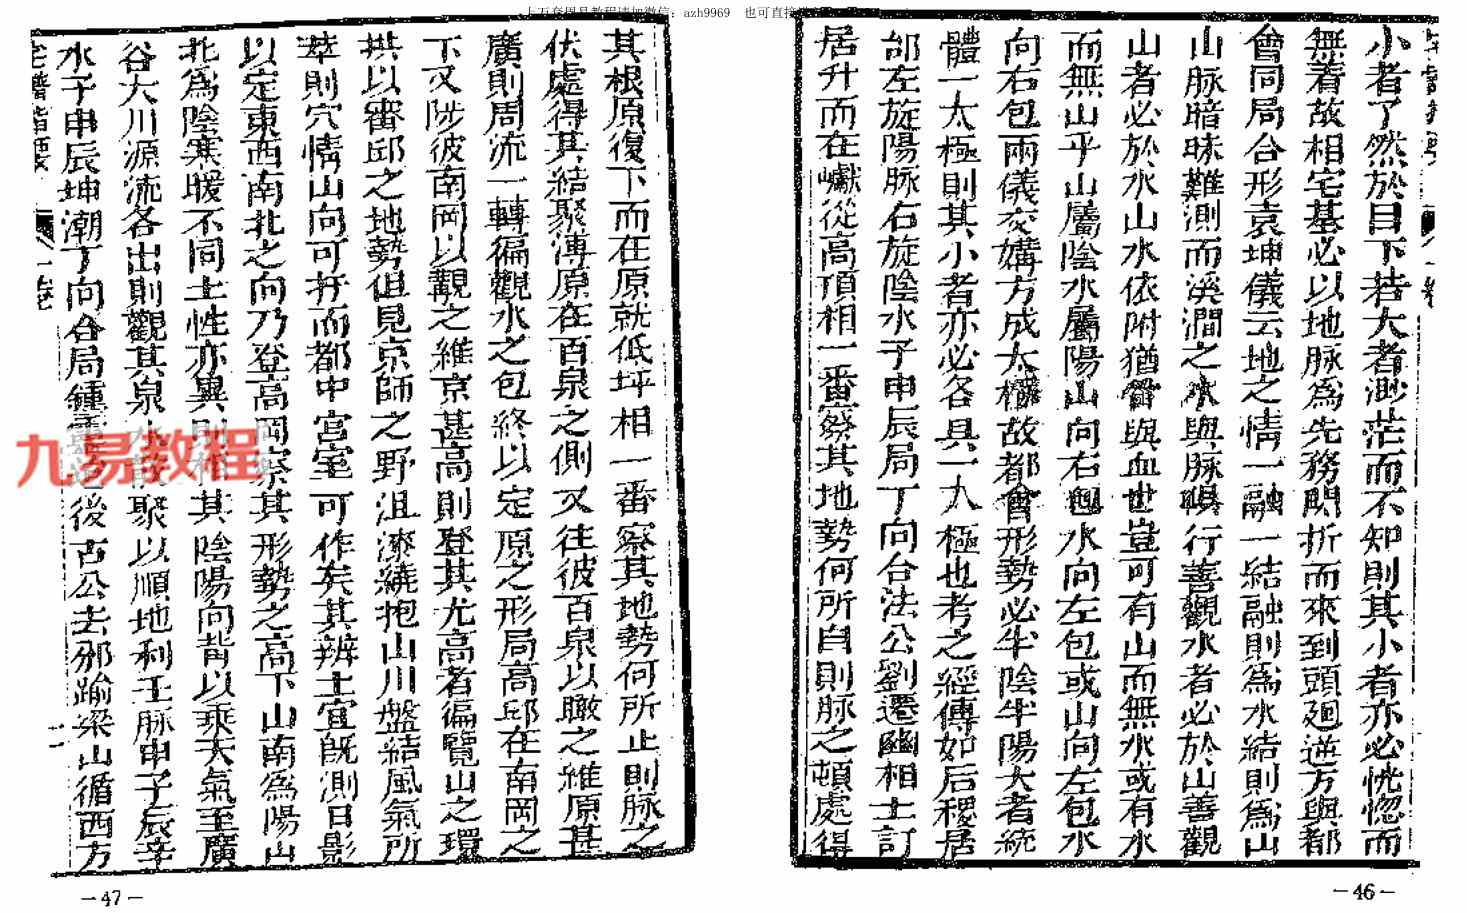 上万套周易教程请加微信：azh9969　也可直接
小者了然於目下若大者渺茫而不知則其小者亦必恍惚而
無着故相宅基必以地脉爲先務閃折而來到頭廻逆方與都
會同局合形袁坤儀云地之情一融一結融則爲水結則爲山
山脉暗昧難測而溪澗之水與脉俱行善觀水者必於山善觀
山者必於水山水依附猶骨與血世豈可有山而無水或有水
而無山乎山屬陰水屬陽山向右包水向左包或山向左包水
向右包兩儀交媾方成太極故都會形勢必半陰半陽大者統
體一太極則其小者亦必各具一太極也考之經傳如后稷居
邰左旋陽脉右旋陰水子申辰局丁向合法公劉遷豳相土訂
居升而在巘從高頂相一番察其地勢何所自則脉之頓處得
其根原復下而在原就低坪相一番察其地勢何所止則脉之
伏處得其結聚溥原在百泉之側又往彼百泉以瞰之維原甚
廣則周流一轉徧觀水之包終以定原之形局高邱在南岡之
下又陟彼南岡以觀之維京甚高則登其尤高者徧覽山之環
拱以審邱之地勢但見京師之野沮漆繞抱山川盤結風氣所
萃則穴情山向可扞而都中宮室可作矣其辨土宜旣測日影
以定東西南北之向乃登高岡察其形勢之高下山南爲陽山
北爲陰寒暖不同土性亦異則相其陰陽向背以乘天氣至廣
谷大川源流各出則觀其泉水聚以順地利壬脉申子辰辛
水子申辰坤潮丁向合局鍾後古公去邠踰梁山循西方
宅譜指要
卷一
九易教程
—47—
—46—